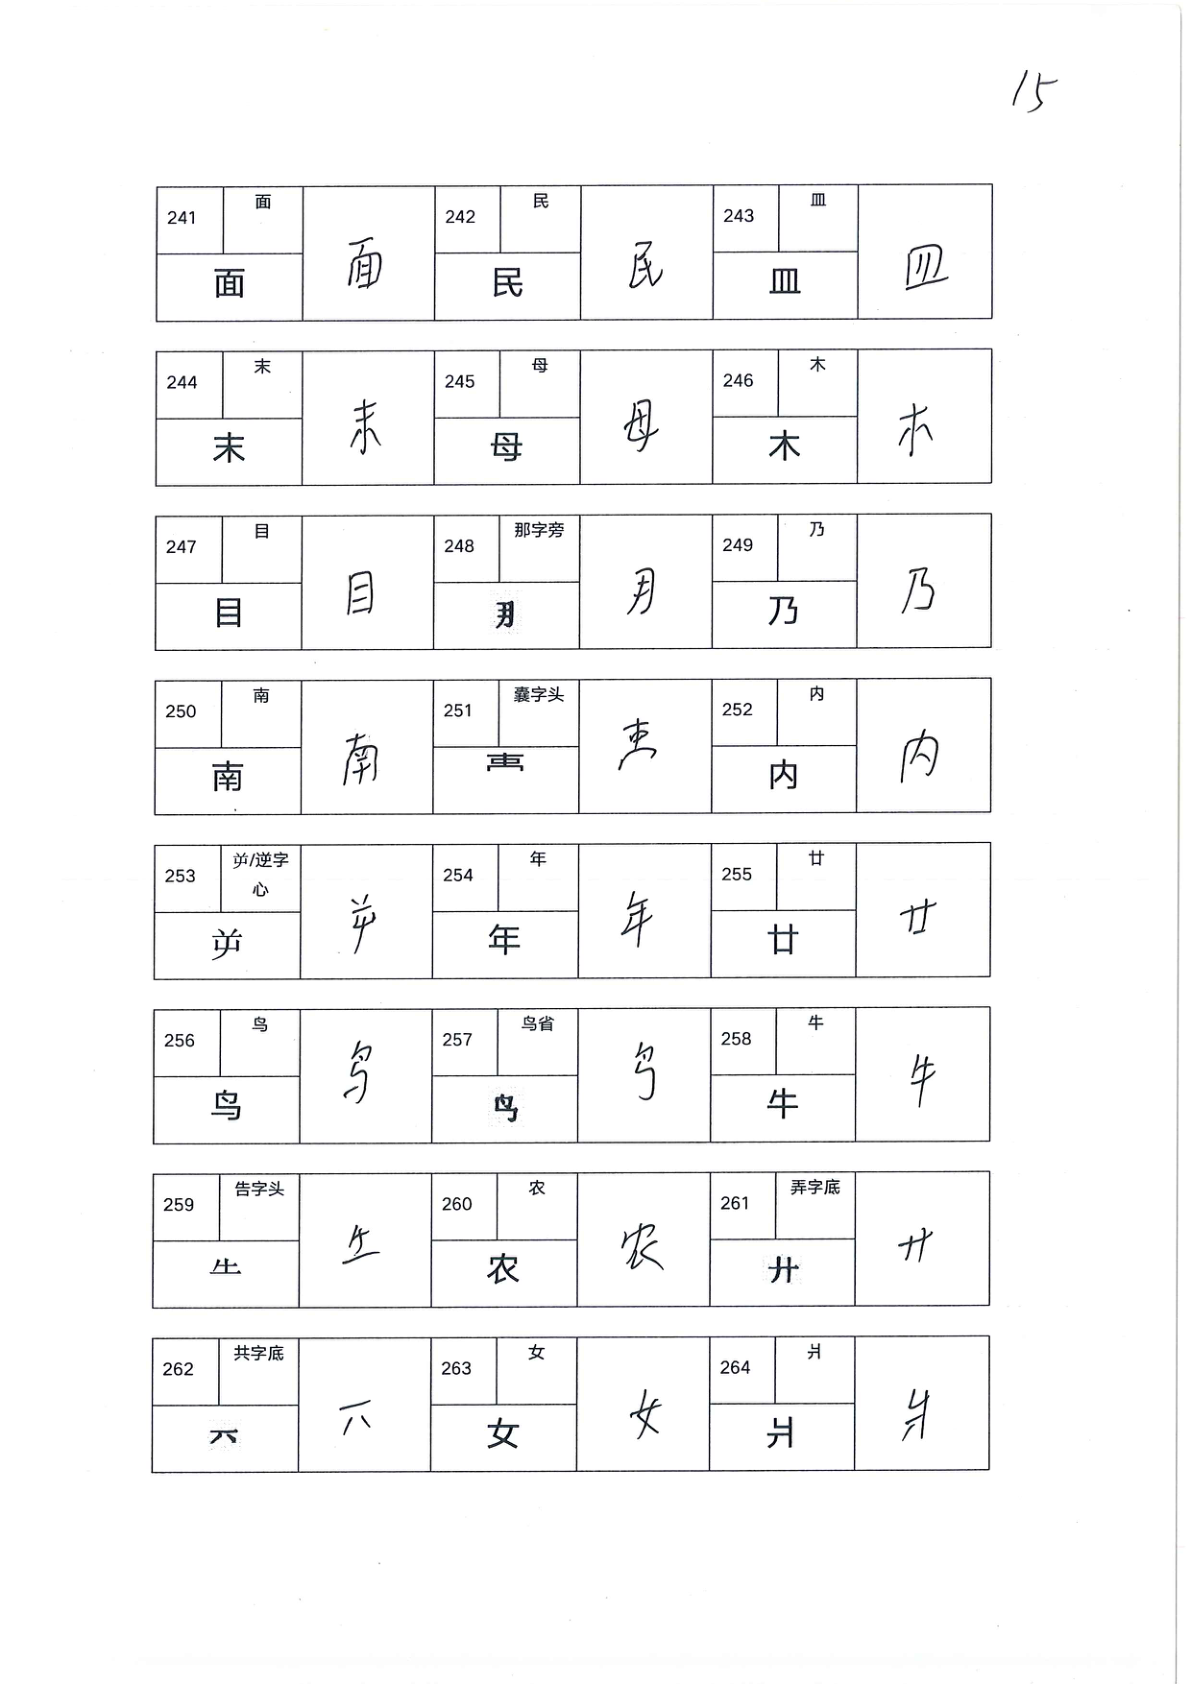 15
241 面 面 面 242 民 民 民 243 皿 皿 皿
244 末 末 末 245 母 母 母 246 木 木 木
247 目 目 目 248 那字旁 249 乃 乃 乃
250 南 南 南 251 囊字头 252 内 内 内
253 屰/逆字心 屰 屰 254 年 年 年 255 廿 廿 廿
256 鸟 鸟 鸟 257 鸟省 258 牛 牛 牛
259 告字头 ⺧ ⺧ 260 农 农 农 261 弄字底 廾 廾
262 共字底 263 女 女 女 264 爿 爿 爿